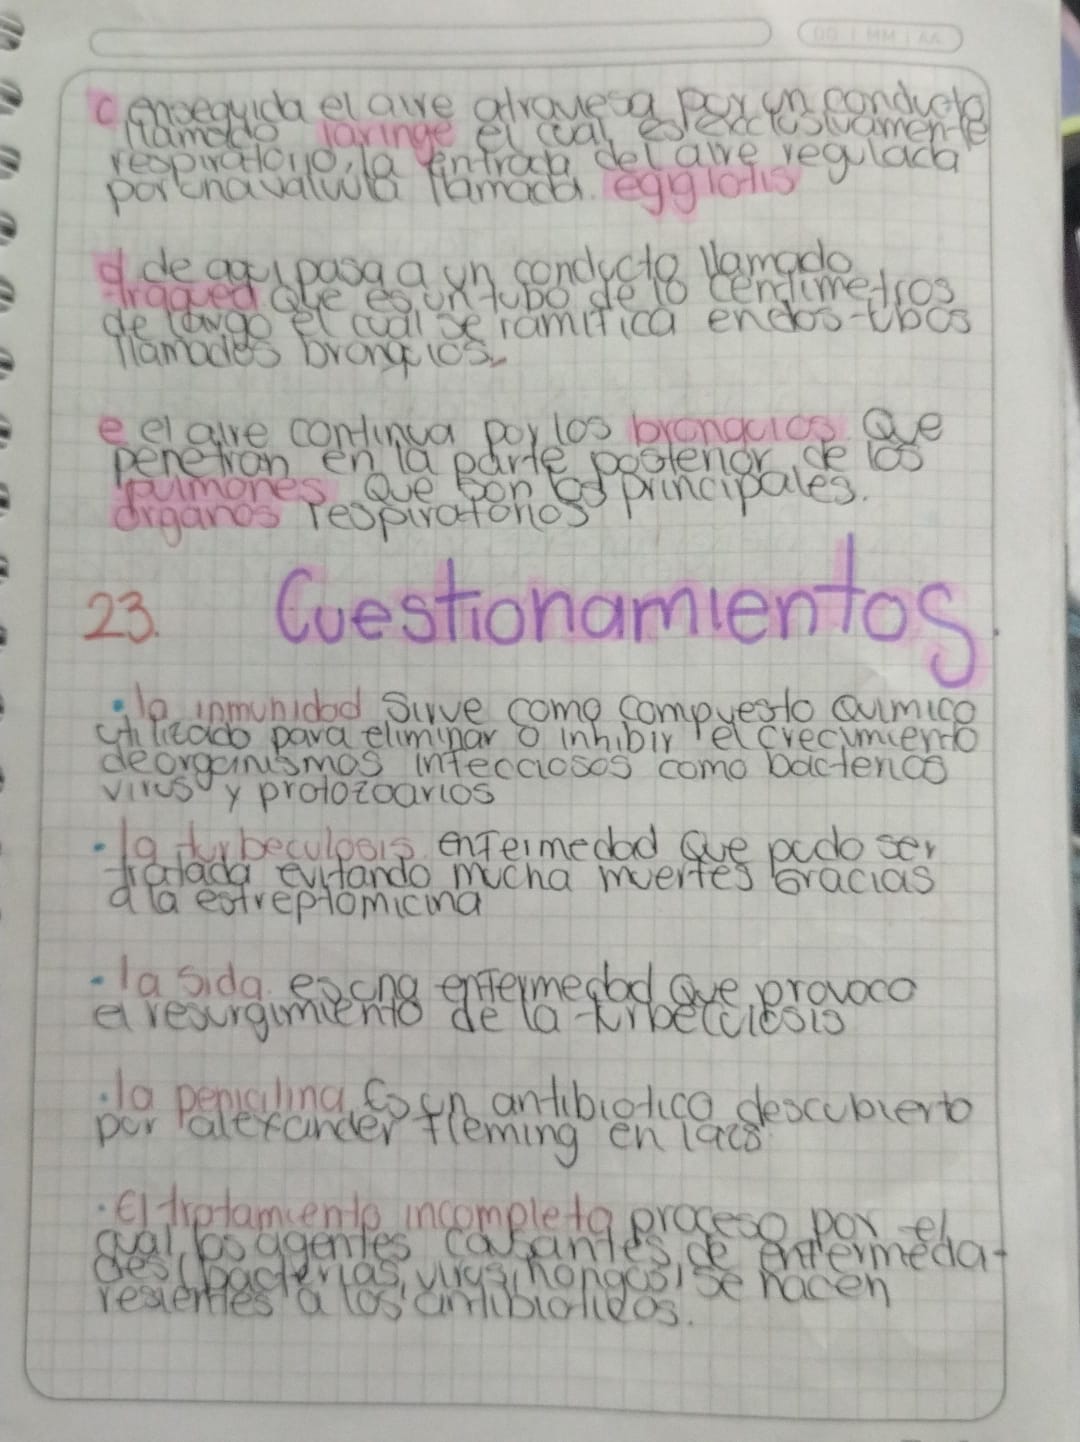 DD | MM | AA
c enseguida el aire atraviesa por un conducto
llamado laringe el cual es exclusivamente
respiratorio, la entrada del aire regulada
por una valvula llamada. egglotis
d. de aqui pasa a un conducto llamado
traquea que es un tubo de 10 centimetros
de largo el cual se ramifica en dos tubos
llamados bronquios.
e el aire continua por los bronquios. Que
penetran en la parte posterior de los
pulmones que son los principales.
órganos respiratorios
23. Cuestionamientos.
• la inmunidad Sirve como compuesto Quimico
utilizado para eliminar o inhibir el crecimiento
de organismos infecciosos como bacterias
virus y protozoarios
• la turbeculosis. enfermedad Que pudo ser
tratada evitando mucha muertes Gracias
a la estreptomicina
• la sida. es una enfermedad que provoco
el resurgimiento de la turbeculosis
• la penicilina Es un antibiotico descubierto
por alexander fleming en
• El tratamiento incompleto proceso por el
cual, los agentes causantes de enfermeda-
des (bacterias, virus, hongos) se hacen
a los antibioticos.